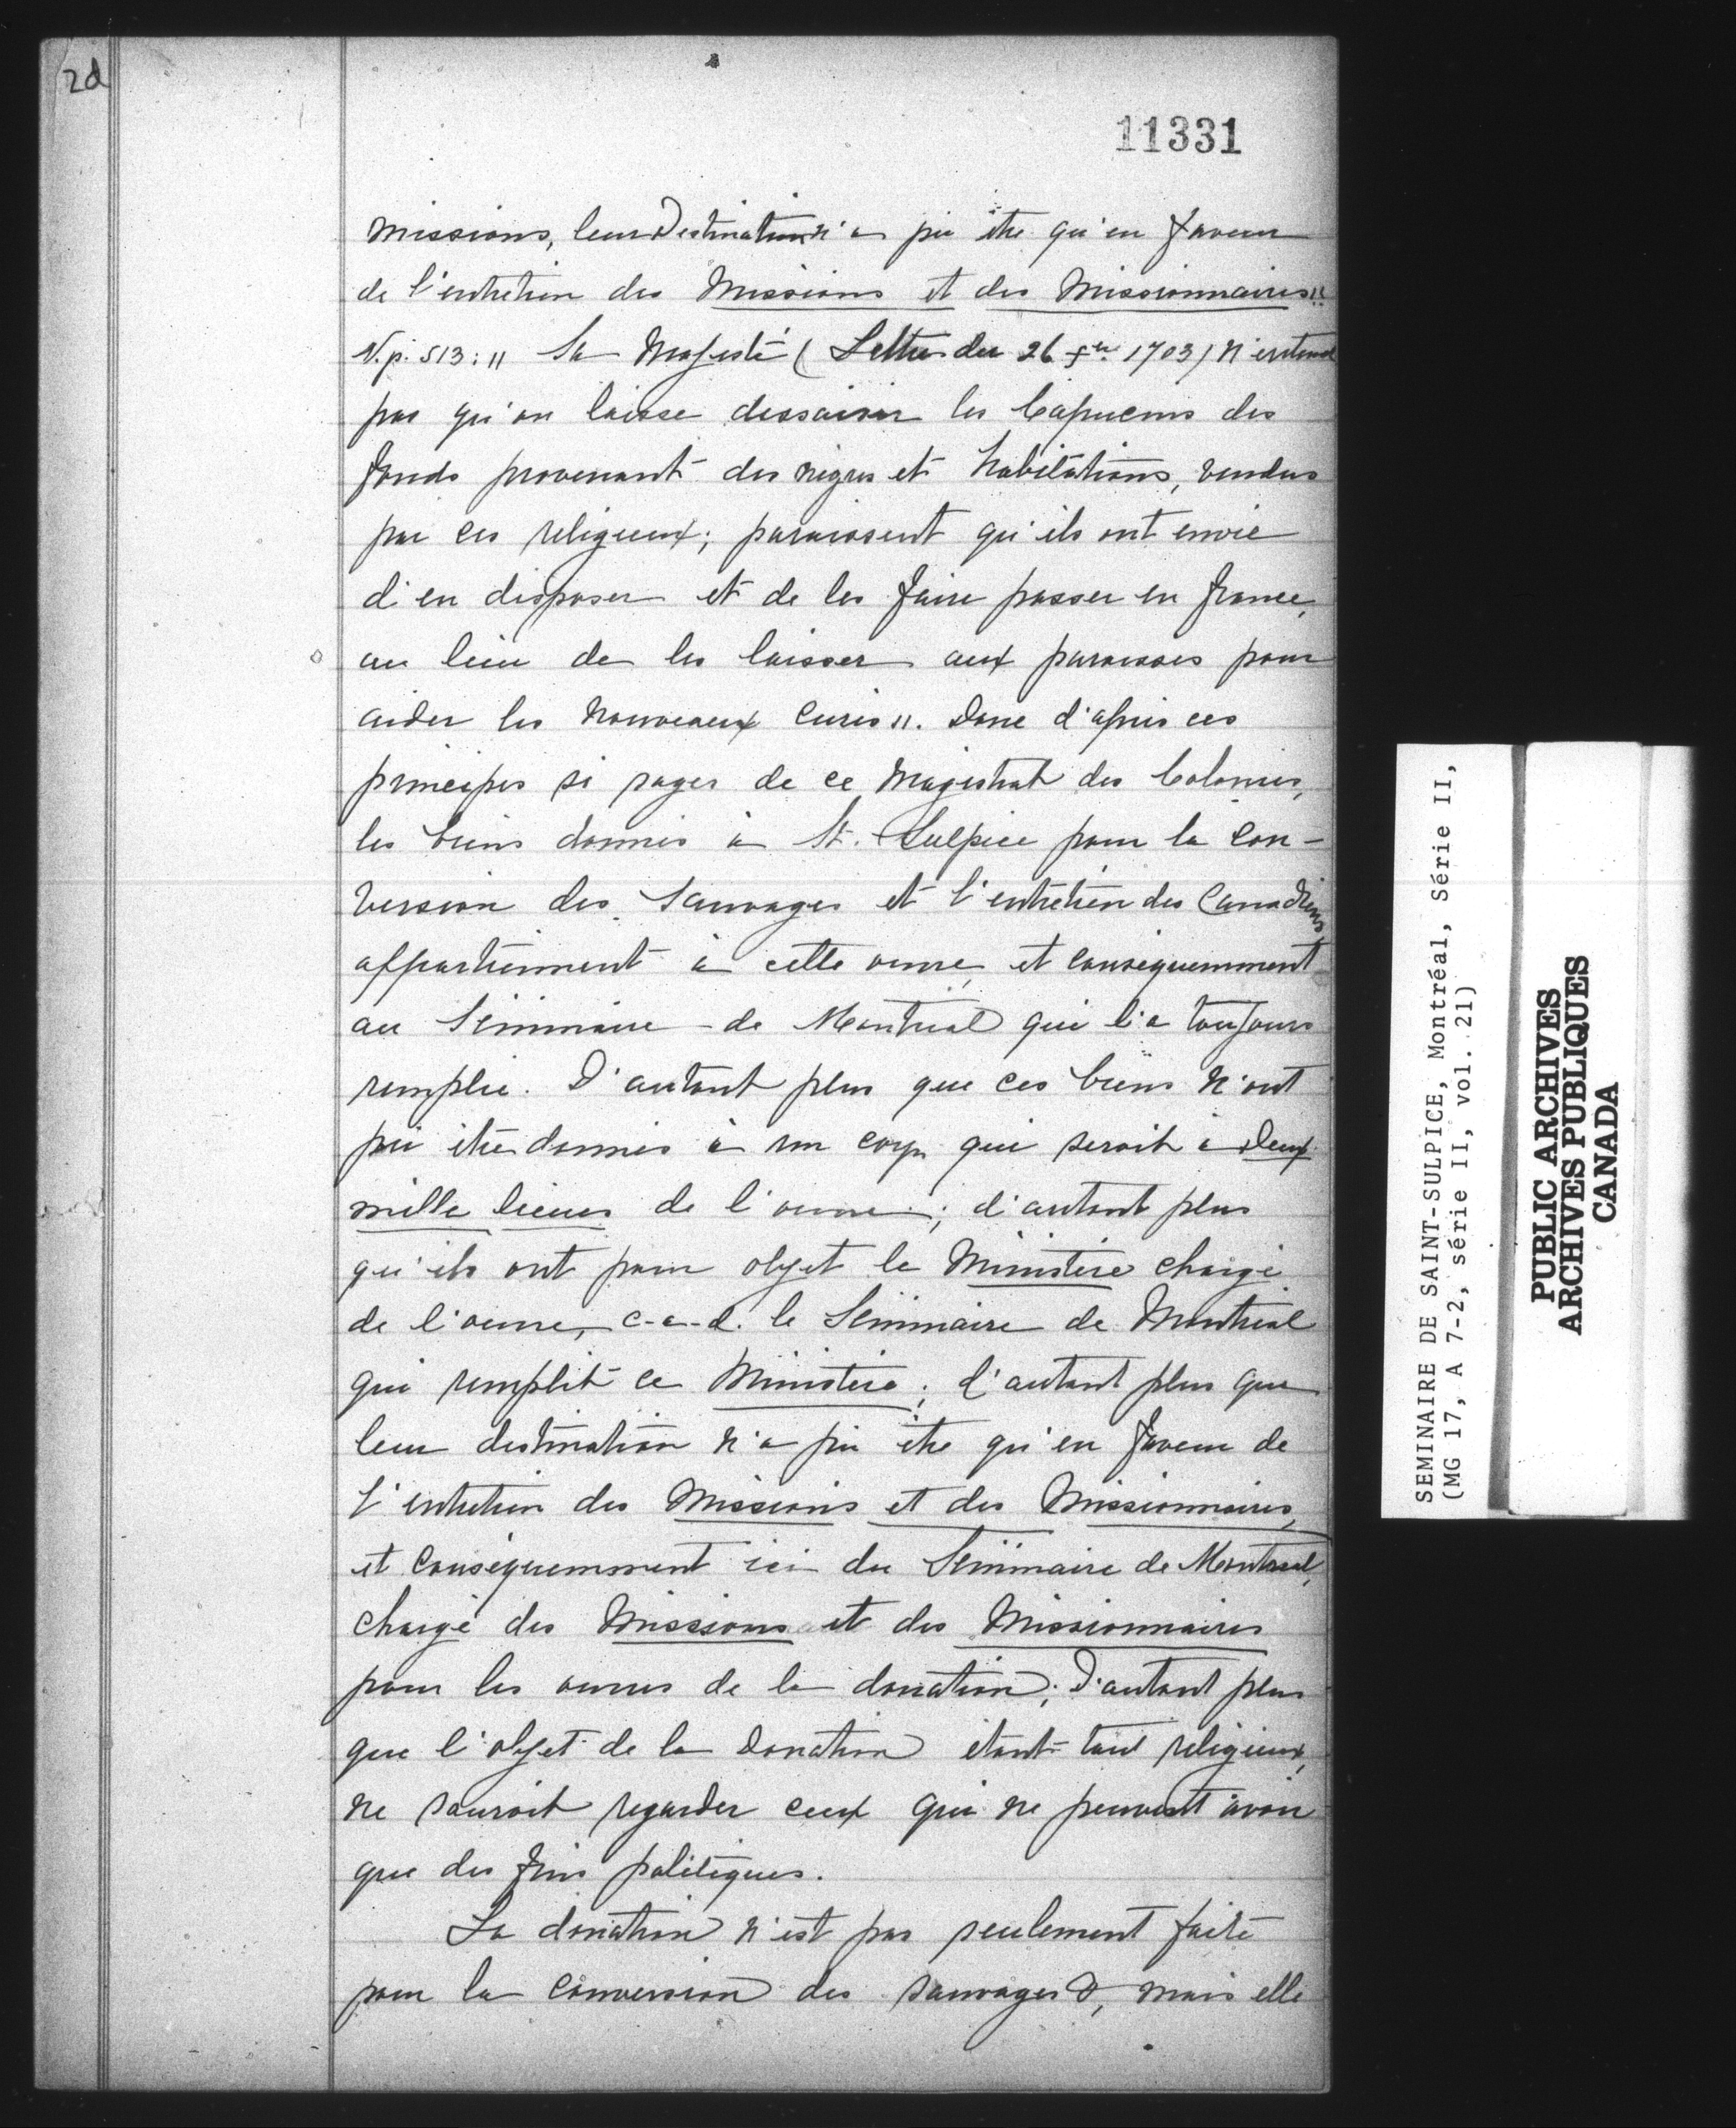 2d
11331
missions, leur Destination n'a pu être qu'en faveur
de l'entretien des Missions et des Missionnaires "
V. p. 513: " Sa Majesté (Lettre du 26 fer 1703) n'entend
pas qu'on laisse dessaisir les Capucins des
fonds provenant des nègres et habitations, vendus
par ces religieux; paraissent qu'ils ont envie
d'en disposer et de les faire passer en france,
au lieu de les laisser aux paroisses pour
aider les nouveaux curés ". Donc d'après ces
principes si sages de ce Magistrat des Colonies,
les biens donnés à St. Sulpice pour la con-
version des Sauvages et l'entretien des Canadiens
appartiennent à cette œuvre, et conséquemment
au Séminaire de Montréal qui l'a toujours
remplie. D'autant plus que ces biens n'ont
pu être donnés à un corps qui seroit à deux
mille lieues de l'œuvre; d'autant plus
qu'ils ont pour objet le Ministère chargé
de l'œuvre, c-a-d. le Séminaire de Montréal
qui remplit ce Ministère; d'autant plus que
leur destination n'a pu être qu'en faveur de
l'entretien des Missions et des Missionnaires,
et conséquemment ici du Séminaire de Montréal,
chargé des Missions et des Missionnaires
pour les œuvres de la donation; D'autant plus
que l'objet de la Donation étant tout religieux,
ne sauroit regarder ceux qui ne peuvent avoir
que des fins politiques.
La donation n'est pas seulement faite
pour la conversion des sauvages &, mais elle
SEMINAIRE DE SAINT-SULPICE, Montréal, Série II,
(MG 17, A 7-2, série II, vol. 21)
PUBLIC ARCHIVES
ARCHIVES PUBLIQUES
CANADA